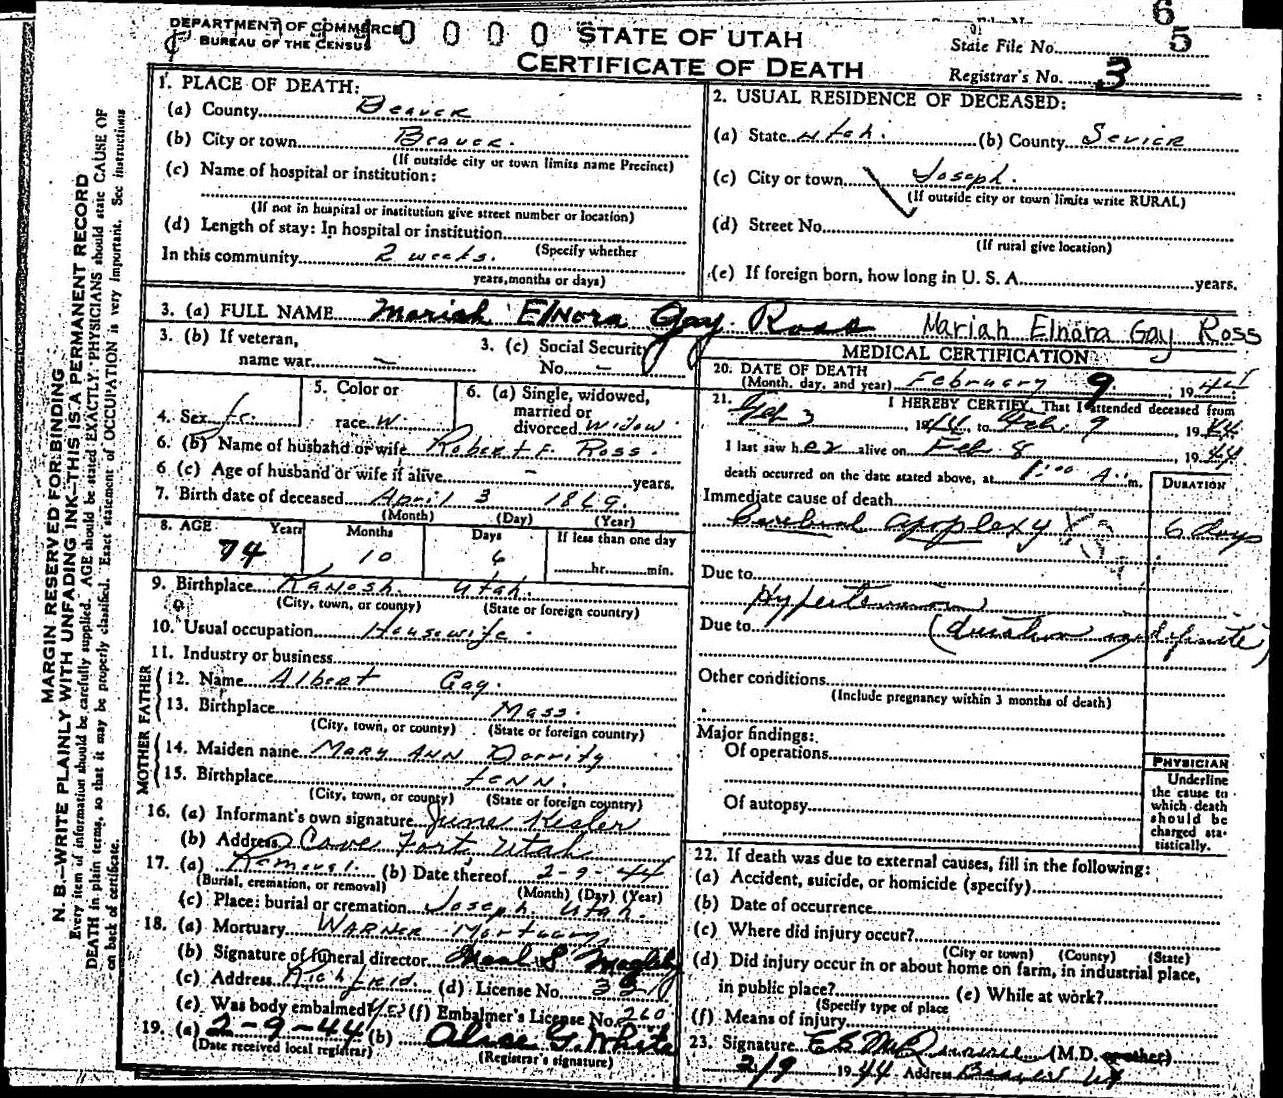 DEPARTMENT OF COMMERCE
BUREAU OF THE CENSUS
0 0 0 0
STATE OF UTAH
CERTIFICATE OF DEATH
6
5
State File No.
Registrar's No. 3
MARGIN RESERVED FOR BINDING
N. B.—WRITE PLAINLY WITH UNFADING INK—THIS IS A PERMANENT RECORD
Every item of information should be carefully supplied. AGE should be stated EXACTLY. PHYSICIANS should state CAUSE OF
DEATH in plain terms, so that it may be properly classified. Exact statement of OCCUPATION is very important. See instructions
on back of certificate.
1. PLACE OF DEATH:
(a) County Beaver
(b) City or town Beaver.
(If outside city or town limits name Precinct)
(c) Name of hospital or institution:
(If not in hospital or institution give street number or location)
(d) Length of stay: In hospital or institution
(Specify whether
In this community 2 weeks.
years, months or days)
2. USUAL RESIDENCE OF DECEASED:
(a) State Utah. (b) County Sevier
(c) City or town Joseph.
(If outside city or town limits write RURAL)
(d) Street No.
(If rural give location)
(e) If foreign born, how long in U. S. A. years.
3. (a) FULL NAME Mariah Elnora Gay Ross Mariah Elnora Gay Ross
3. (b) If veteran,
name war —
3. (c) Social Security
No. —
4. Sex fe.
5. Color or
race W.
6. (a) Single, widowed,
married or
divorced widow.
6. (b) Name of husband or wife Robert F. Ross.
6 (c) Age of husband or wife if alive - years.
7. Birth date of deceased April 3 1869.
(Month) (Day) (Year)
8. AGE Years Months Days If less than one day
74 10 6 hr. min.
9. Birthplace Kanosh. Utah.
(City, town, or county) (State or foreign country)
10. Usual occupation Housewife.
11. Industry or business
FATHER
12. Name Albert Gay.
13. Birthplace Mass.
(City, town, or county) (State or foreign country)
MOTHER
14. Maiden name Mary Ann Dorrity
15. Birthplace Tenn.
(City, town, or county) (State or foreign country)
16. (a) Informant's own signature June Kesler
(b) Address Cove Fort, Utah
17. (a) Removal. (b) Date thereof 2-9-44
(Burial, cremation, or removal) (Month) (Day) (Year)
(c) Place: burial or cremation Joseph, Utah.
18. (a) Mortuary Warner Mortuary
(b) Signature of funeral director S Magleby
(c) Address Richfield. (d) License No.
(e) Was body embalmed Yes (f) Embalmer's License No. 260
19. (a) 2-9-44 (b) Alice G. White
(Date received local registrar) (Registrar's signature)
MEDICAL CERTIFICATION
20. DATE OF DEATH
(Month, day, and year) February 9, 1944
21. I HEREBY CERTIFY, That I attended deceased from
Feb 3, 1944, to Feb. 9, 1944
I last saw her alive on Feb 8, 1944
death occurred on the date stated above, at 1:00 A. m.
DURATION
Immediate cause of death
Cerebral apoplexy 6 days
Due to
Hypertension
Due to (duration indefinite)
Other conditions
(Include pregnancy within 3 months of death)
Major findings:
Of operations
Of autopsy
PHYSICIAN
Underline
the cause to
which death
should be
charged sta-
tistically.
22. If death was due to external causes, fill in the following:
(a) Accident, suicide, or homicide (specify)
(b) Date of occurrence
(c) Where did injury occur?
(City or town) (County) (State)
(d) Did injury occur in or about home on farm, in industrial place,
in public place? (e) While at work?
(Specify type of place
(f) Means of injury
23. Signature (M.D. or other)
2/9 1944 Address Beaver Ut